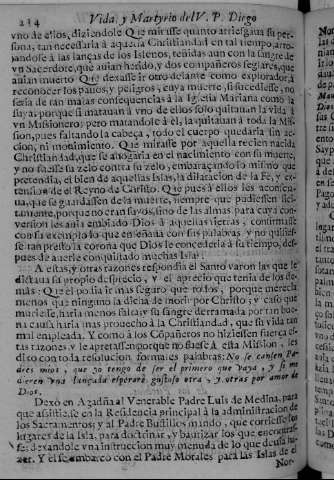 234 Vida, y Martyrio del V. P. Diego
vno de ellos, diziendole Que mirasse quanto arriesgaua su per-
sona, tan necessaria à aquella Christiandad en tal tiempo, arro-
jandose à las lanças de los Isleños, teñidas aun con la sangre de
vn Sacerdote, que auian herido, y dos compañeros seglares, que
auian muerto. Que dexasse ir otro delante como explorador, à
reconocer los passos, y peligros, cuya muerte, si sucediesse, no
seria de tan malas consequencias à la Iglesia Mariana como la
suya: porque si matauan à vno de ellos solo quitauan la vida à
vn Missionero; pero matandole à èl, la quitauan à toda la Mis-
sion, pues faltando la cabeça, todo el cuerpo quedaria sin ac-
cion, ni mouimiento. Que mirasse por aquella recien nacida
Christiandad, que se ahogaria en el nacimiento con su muerte,
y no fuesse su zelo contra su zelo, embaraçando lo mismo que
pretendia, el bien de aquellas Islas, la dilatacion de la Fè, y ex-
tension de el Reyno de Christo. Que pues à ellos les aconseja-
ua, que se guardassen de la muerte, siempre que pudiessen lici-
tamente, porque no eran suyos, sino de las almas para cuya con-
version les auia embiado Dios à aquellas tierras, confirmasse
con su exemplo lo que enseñaua con sus palabras, y no quisies-
se tan presto la corona que Dios le concederia à su tiempo, des-
pues de auerle conquistado muchas Islas.
A estas, y otras razones respondia el Santo varon las que le
dictaua su propio desprecio, y el aprecio que tenia de los de-
màs: Que èl podia ir mas seguro que todos, porque merecia
menos que ninguno la dicha de morir por Christo; y caso que
muriesse, haria menos falta, y su sangre derramada por tan bue-
na causa haria mas prouecho à la Christiandad, que su vida tan
mal empleada. Y como à los Compañeros no hiziessen fuerça es-
tas razones, y le apretassen porque no fuesse à esta Mission, les
dixo con toda resolucion formales palabras: No se cansen Pa-
dres mios, que yo tengo de ser el primero que vaya, y si me
dieren vna lançada esperarè, gustoso otra, y otras por amor de
Dios.
Dexò en Agadña al Venerable Padre Luis de Medina, para
que assistiesse en la Residencia principal à la administracion de
los Sacramentos; y al Padre Bustillos mandò, que corriesse los
lugares de la Isla, para doctrinar, y bautizar los que encontras-
se: dexandole vna instruccion muy menuda de lo que deuia ha-
zer. Y èl se embarcò con el Padre Morales para las Islas de el
Nor-